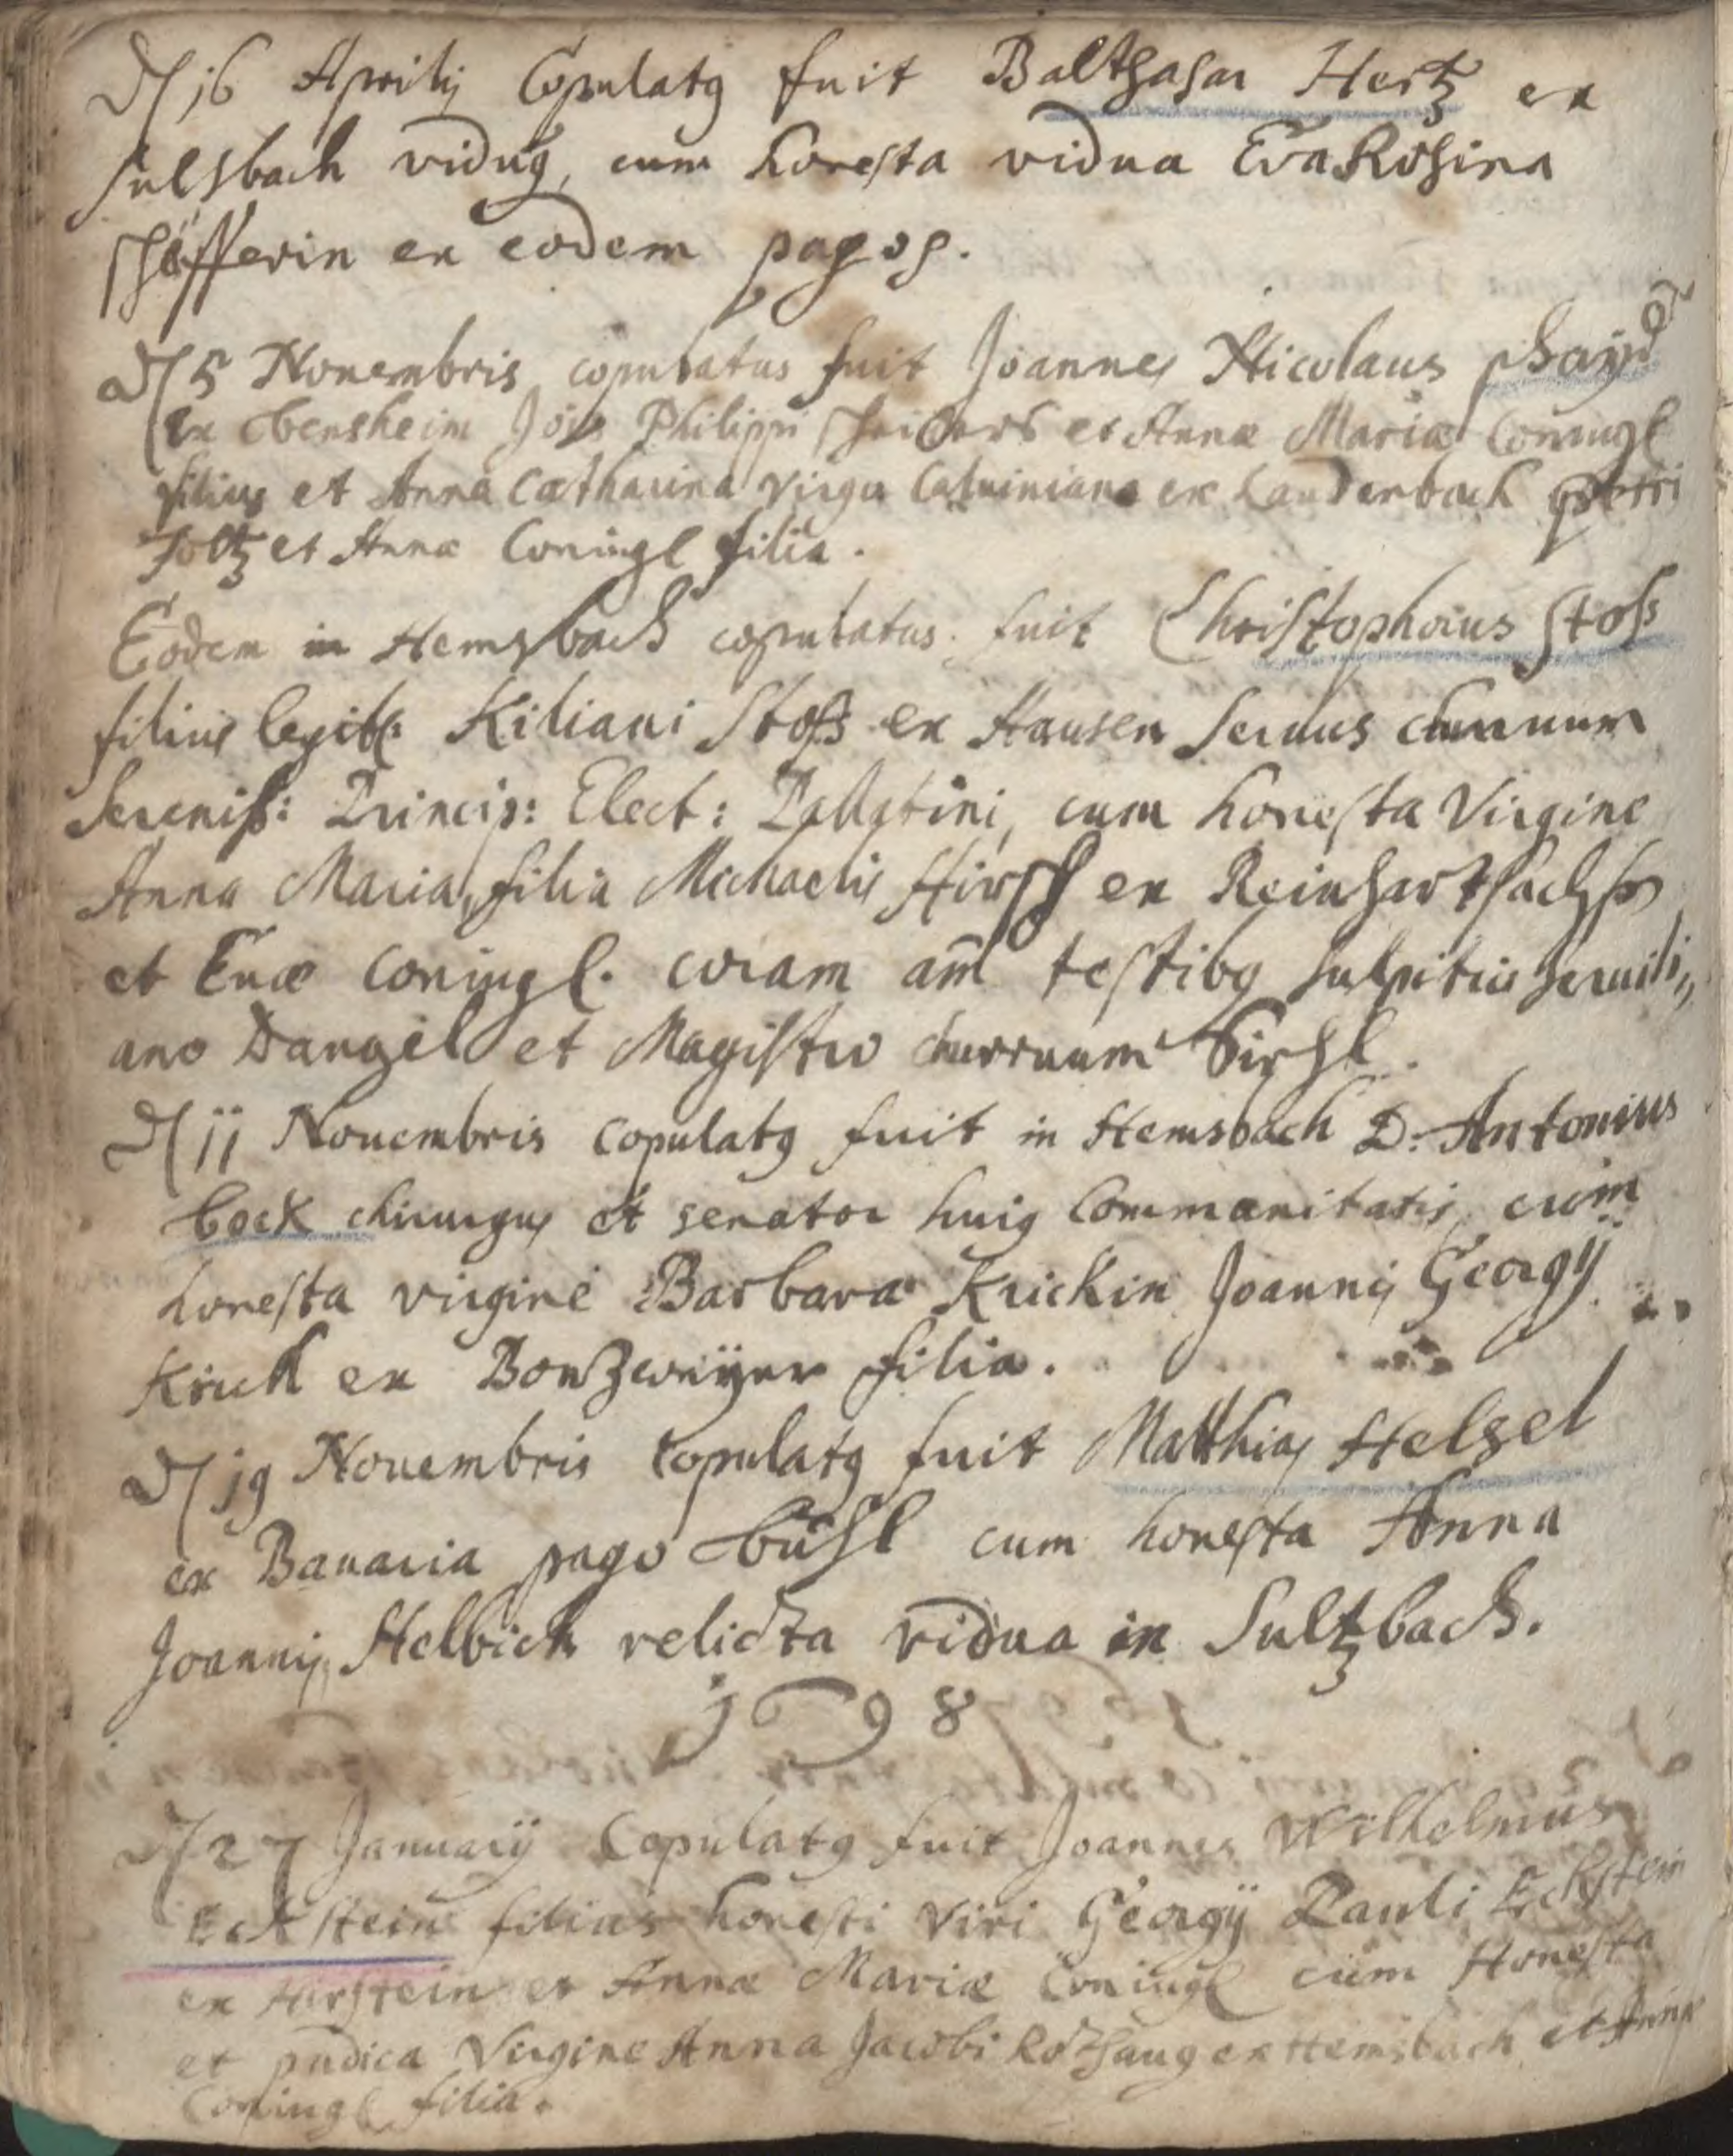 D 16 Aprilis Copulatg fuit Balthasar Hertz ex
Sulsbach vidug, cum honesta vidua Eva Rosina
Schäfferin ex eodem pago
D 5 Novembris copulatus fuit Joannes Nicolaus
ex Bensheim Jois Philippi et Annæ Mariæ Coniugl
filius et Anna Catharina virgo Calviniana ex Lauderbach Petri
Foltz et Annæ Coniugl filia.
Eodem in Hemsbach copulatus fuit Christophorus Stoss
filius legit: Kiliani Stoss ex Hausen servus curruum
Sereniss: Princip: Elect: Pallatini, cum honesta Virgine
Anna Maria, filia Michaelis Hirsch ex Reinhartsachsen
et Evæ Coniugl. coram testibg Sulpitio
ano Dangel et Magistro curruum
D 11 Novembris Copulatg fuit in Hemsbach D. Antonius
Bock chirurgus et senator huig Communitatis, cum
honesta virgine Barbara Krickin Joannis Georgij
Krick ex Bonzweÿer filia.
D 19 Novembris copulatg fuit Matthias Helzel
ex Bavaria pago Bühl cum honesta Anna
Joannis Helbich relicta vidua in Sultzbach.
1698
D 27 Januarij Copulatg fuit Joannes Wilhelmus
Eckstein filius honesti viri Georgij Pauli Eckstein
ex et Annæ Mariæ Coniugl cum Honesta
et pudica Virgine Anna Jacobi Rothaug ex Hemsbach et Annæ
Coniugl filia.